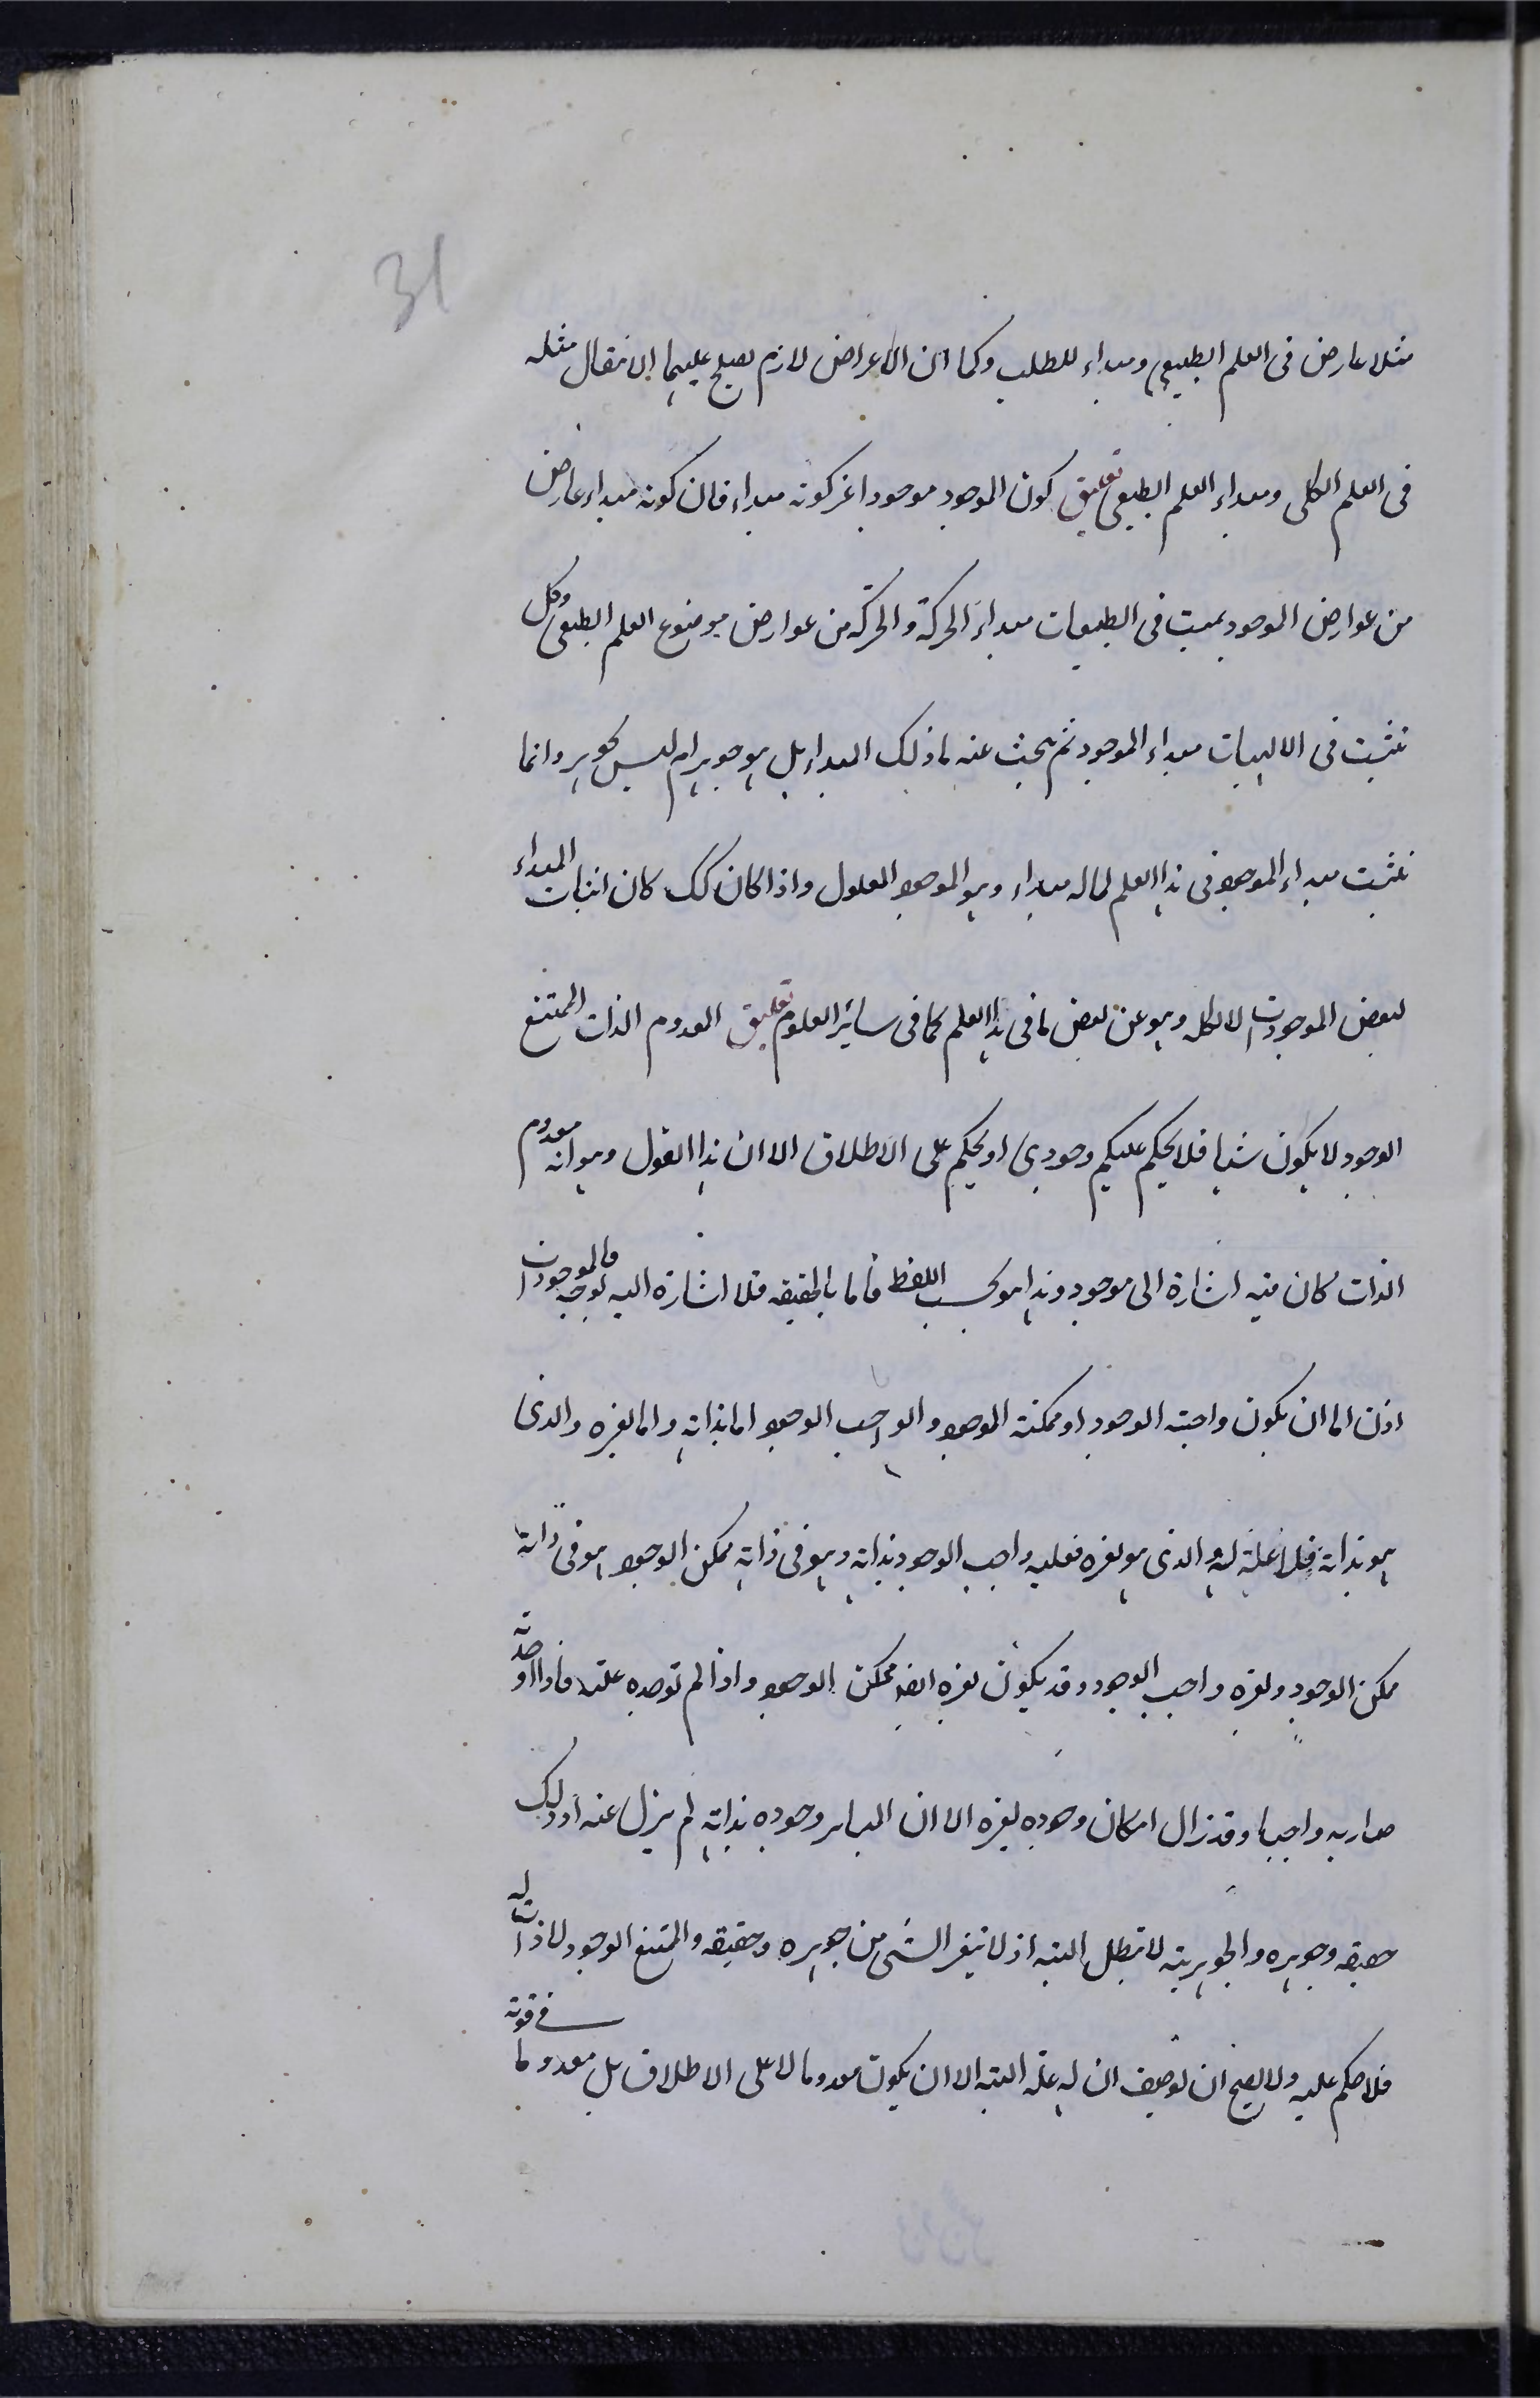 31
مثلا عارض فى العلم الطبيعى ومبداء للطلب وكما ان الاعراض لازم يصلح عليهما ان يقال مثله
فى العلم الكلى ومبداء العلم الطبيعى تعليق كون الموجود موجودا غير كونه مبداء فان كونه مبداء عارض
من عوارض الموجود يثبت فى الطبيعيات مبداء الحركة والحركة من عوارض موضوع العلم الطبيعى وكل
نثبت فى الالهيات مبداء الموجود ثم يبحث عنه ما ذلك المبداء بل هو جوهر ام ليس بجوهر وانما
نثبت مبداء الموجود فى هذا العلم لما له مبداء وهو الموجود المعلول واذا كان كك كان اثبات المبداء
لبعض الموجودات لا لكله وهو عن بعض ما فى هذا العلم كما فى سائر العلوم تعليق المعدوم الذات الممتنع
الوجود لا يكون شيئا فلا يحكم عليه بحكم وجودى او بحكم على الاطلاق الا ان هذا القول وهو انه معدوم
الذات كان فيه اشارة الى موجود وهذا هو بحسب اللفظ فاما بالحقيقه فلا اشارة اليه بوجه فالموجودات
اذن اما ان يكون واجبة الوجود او ممكنة الوجود والواجب الوجود اما بذاته واما بغيره والذى
هو بذاته فلا علة له والذى هو بغيره فعليه واجب الوجود بذاته وهو فى ذاته ممكن الوجود هو فى ذاته
ممكن الوجود ولغيره واجب الوجود وقد يكون لغيره ايضا ممكن الوجود واذا لم توجده علته فاذا اوجدته
صار به واجبا وقد زال امكان وجوده بغيره الا ان وجوده بذاته لم يزل عنه اذ ذلك
حقيقته وجوهره والجوهرية لا تبطل البته اذ لا يتغير الشى من جوهره وحقيقته والممتنع الوجود لا ذات له
فلا حكم عليه ولا يصح ان توصف ان له علة البته الا ان يكون معدوما لا على الاطلاق بل معدوما
فى قوته